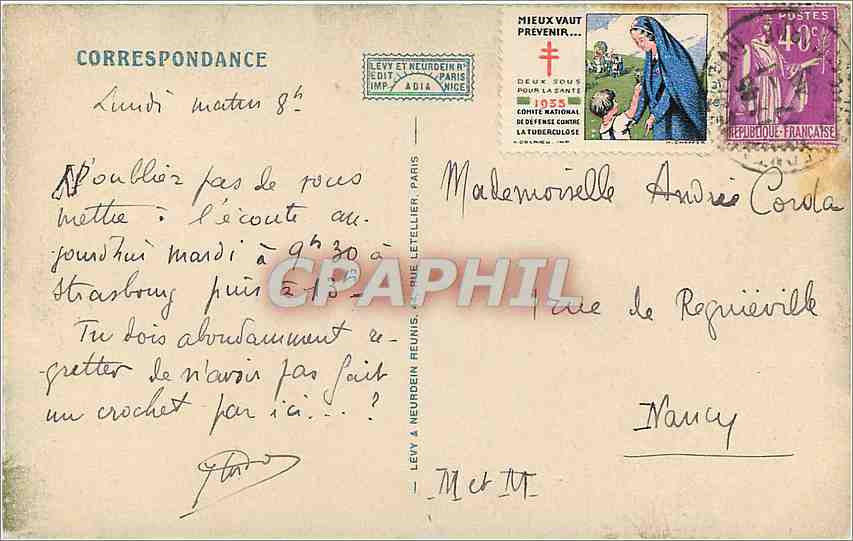 CORRESPONDANCE
LEVY ET NEURDEIN Rs
EDIT PARIS
IMP ADIA NICE
MIEUX VAUT
PREVENIR...
DEUX SOUS
POUR LA SANTE
1935
COMITÉ NATIONAL
DE DÉFENSE CONTRE
LA TUBERCULOSE
POSTES
40c
REPUBLIQUE-FRANÇAISE
Lundi matin 8h
N'oubliez pas de vous
mettre à l'écoute au-
jourd'hui mardi à 9h30 à
Strasbourg puis à 15
Tu dois abondamment re-
gretter de n'avoir pas fait
un crochet par ici....?
— LEVY & NEURDEIN REUNIS, RUE LETELLIER, PARIS —
CPARAPHIL
Mademoiselle Andrée Corda
rue de Regniéville
Nancy
M et M